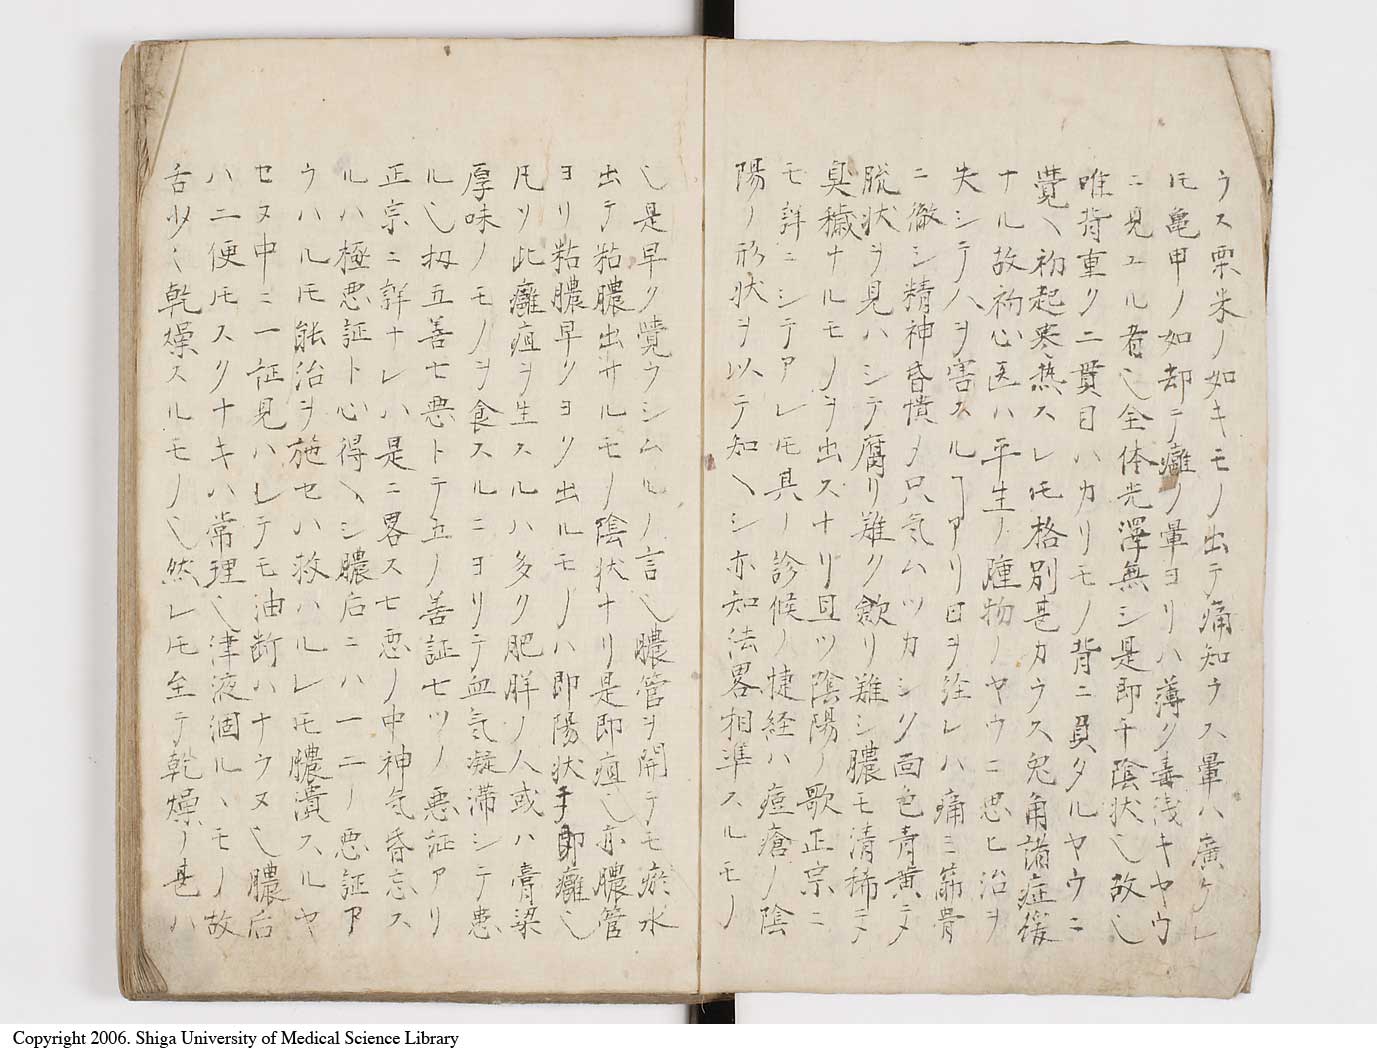 ウス栗米ノ如キモノ出テ痛知ウス暈ハ廣ケレ
𪜈亀甲ノ如却テ癰ノ暈ヨリハ薄ク毒浅キヤウ
ニ見ユル者〆全体光澤無シ是即チ陰状〆故〆
唯背重ク二貫目ハカリモノ背ニ負タルヤウニ
覺ヘ初起寒熱スレ𪜈格別甚カウス兎角諸症緩
ナル故初心医ハ平生ノ腫物ノヤウニ思ヒ治ヲ
失シテハヲ害スルヿアリ日ヲ経レハ痛ミ筋骨
ニ徹シ精神昏憒ノ只気ムツカシク面色青黄テ
脱状ヲ見ハシテ腐リ難ク斂リ難シ膿モ清稀テ
臭穢ナルモノヲ出スナリ且ツ陰陽ノ歌正宗ニ
モ詳ニシテアレ𪜈具ノ診候ノ捷経ハ痘瘡ノ陰
陽ノ形状ヲ以テ知ヘシ亦知法畧相準スルモノ
〆是早ク覺ウシムルノ言〆膿管ヲ開テモ瘀水
出テ粘膿出サルモノ陰状ナリ是即疽〆亦膿管
ヨリ粘膿早クヨク出ルモノハ即陽状チ即癰〆
凡ソ此癰疽ヲ生スルハ多ク肥胖ノ人或ハ膏梁
厚味ノモノヲ食スルニヨリテ血気凝滞シテ患
ル〆扨五善七悪トテ五ノ善証七ツノ悪証アリ
正宗ニ詳ナレハ是ニ畧ス七悪ノ中神気昏忘ス
ルハ極悪証ト心得ヘシ膿后ニハ一二ノ悪証ア
ウハル𪜈能治ヲ施セハ救ハルレ𪜈膿潰スルヤ
セヌ中ニ一証見ハレテモ油断ハナウヌ〆膿后
ハ二便𪜈スクナキハ常理〆津液涸ルヽモノ故
舌少〻乾燥スルモノ〆然レ𪜈至テ乾燥ノ甚ハ
Copyright 2006. Shiga University of Medical Science Library